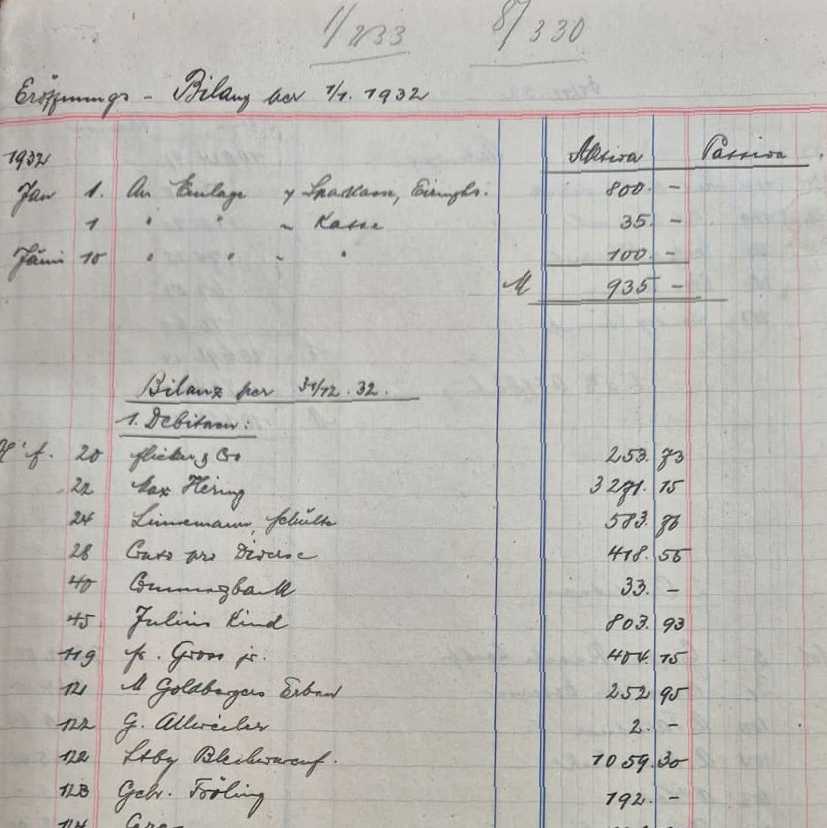 1/233 8/330
Eröffnungs - Bilanz per 1/1. 1932
1932 Aktiva Passiva
Jan 1. An Einlage Sparkasse, 800. -
1 " " Kasse 35. -
Juni 10 " " " 100. -
M 935 -
Bilanz per 31/12. 32.
1. Debitoren:
f. 20 & Co 253. 73
22 Max Hering 3271. 15
24 Linnemann, Schulte 583. 76
28 Conto pro Diverse 418. 55
40 Commerzbank 33. -
45. Julius Kind 803. 93
119 fr. Gross jr. 404. 15
121 M Goldbergers Erben 252 95
122 G. Allweiler 2. -
122 1059. 30
123 Gebr. Fröling 192. -
124